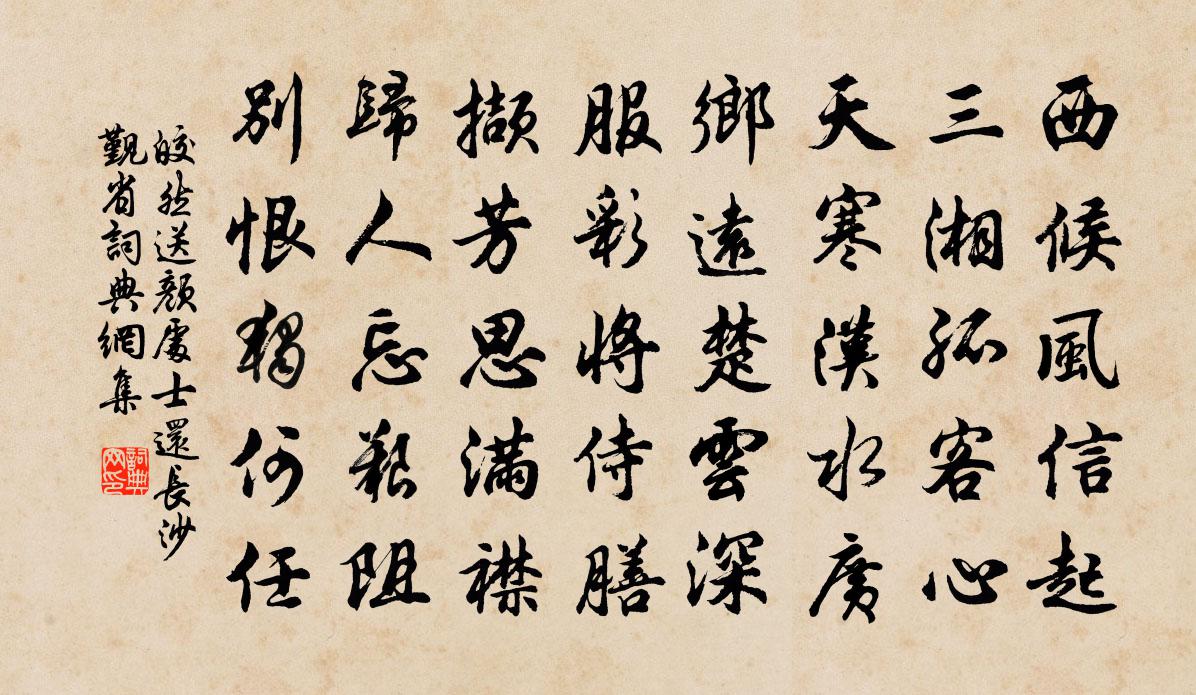 西候風信起
三湘孤客心
天寒漢水廣
鄉遠楚雲深
服彩將侍膳
擷芳思滿襟
歸人忘艱阻
別恨獨何任
皎然送顏處士還長沙
覲省詞典網集
詞典网印